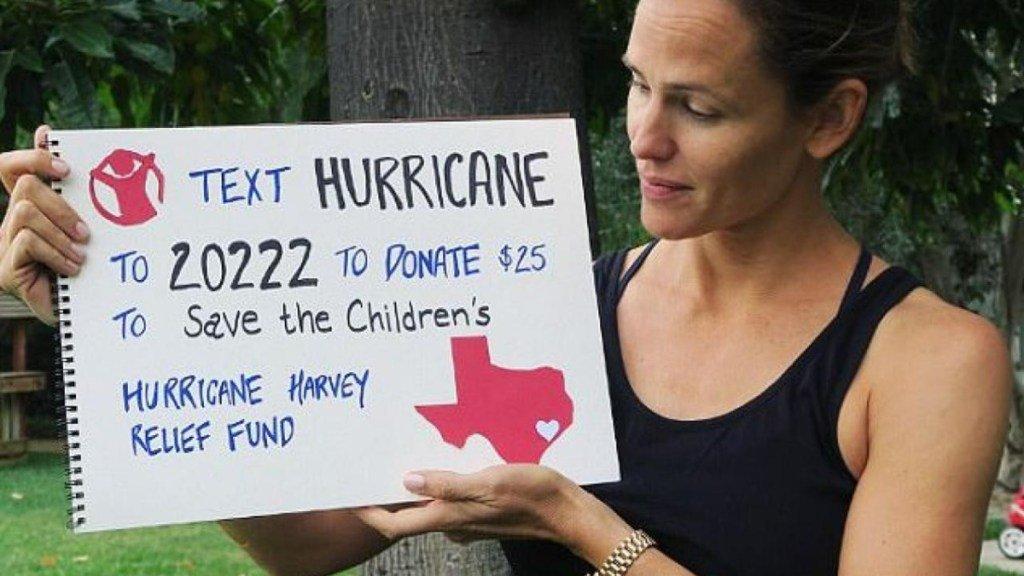 TEXT HURRICANE
TO 20222 TO DONATE $25
TO Save the Children's
HURRICANE HARVEY
RELIEF FUND